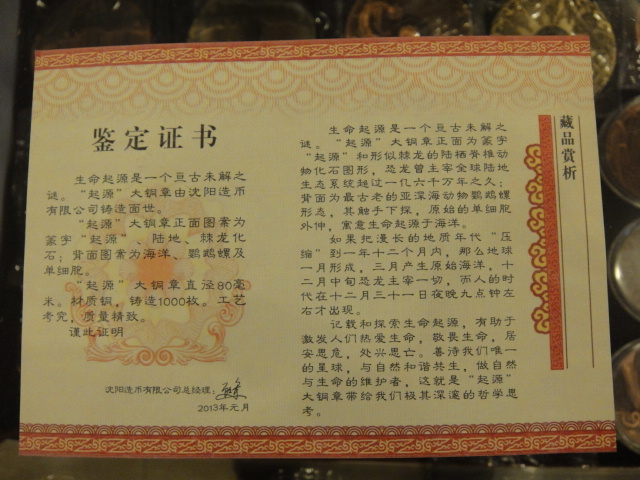 鉴定证书
生命起源是一个亘古未解之
谜。“起源”大铜章由沈阳造币
有限公司铸造面世。
“起源”大铜章正面图案为
篆字“起源”、陆地、棘龙化
石；背面图案为海洋、鹦鹉螺及
单细胞。
“起源”大铜章直径80毫
米。材质铜，铸造1000枚。工艺
考究，质量精致。
谨此证明
沈阳造币有限公司总经理：
2013年元月
藏品赏析
生命起源是一个亘古未解之
谜。“起源”大铜章正面为篆字
“起源”和形似棘龙的陆栖脊椎动
物化石图形，恐龙曾主宰全球陆地
生态系统超过一亿六千万年之久；
背面为最古老的亚深海动物鹦鹉螺
形态，其触手下探，原始的单细胞
外伸，寓意生命起源于海洋。
如果把漫长的地质年代“压
缩”到一年十二个月内，那么地球
一月形成，三月产生原始海洋，十
二月中旬恐龙主宰一切，而人的时
代在十二月三十一日夜晚九点钟左
右才出现。
记载和探索生命起源，有助于
激发人们热爱生命，敬畏生命，居
安思危，处兴思亡。善待我们唯一
的星球，与自然和谐共生，做自然
与生命的维护者，这就是“起源”
大铜章带给我们极其深邃的哲学思
考。